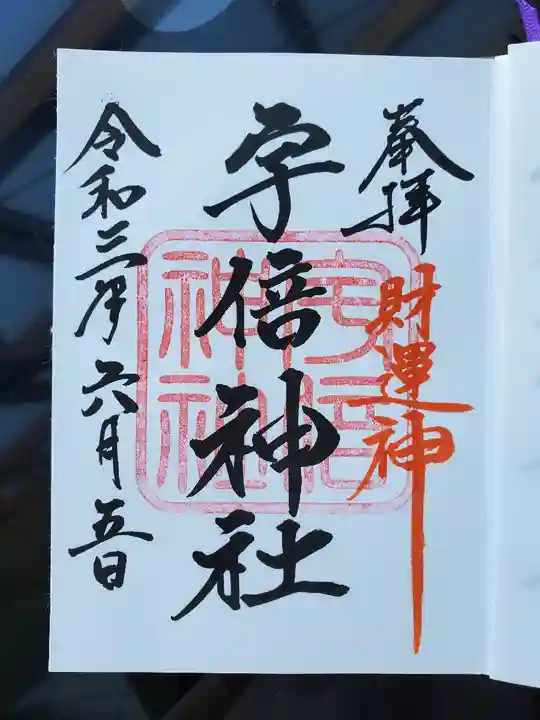 奉拝
財運神
宇倍神社
令和三年六月五日
宇倍神社